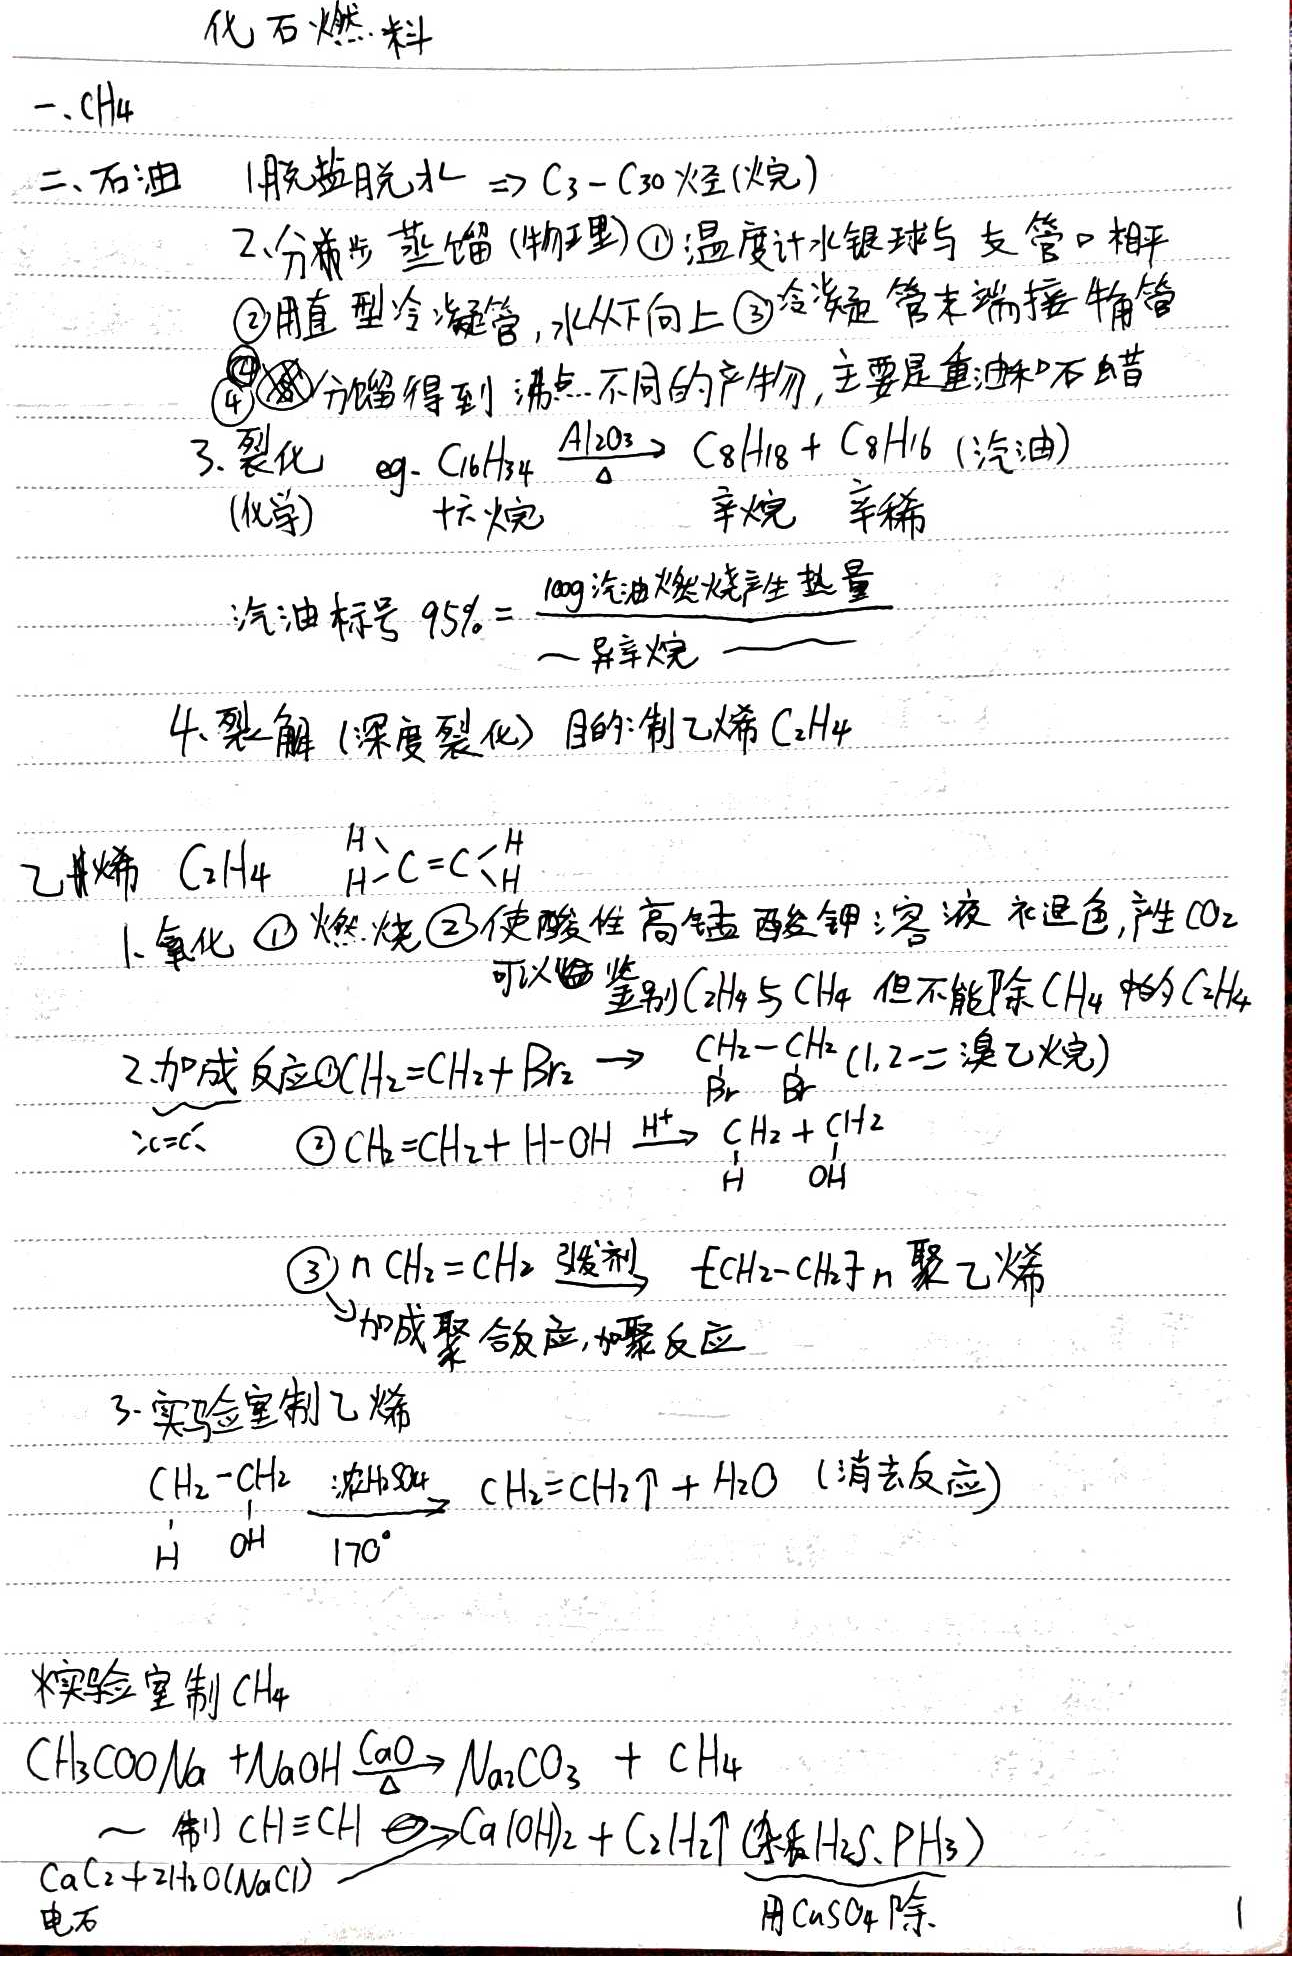 化石燃料
一、CH4
二、石油 1.脱盐脱水 => C3-C30 烃(烷)
2.分步蒸馏(物理)①温度计水银球与支管口相平
②用直型冷凝管,水从下向上③冷凝管末端接牛角管
④分馏得到沸点不同的产物,主要是重油和石蜡
3.裂化 eg. C16H34 Al2O3 → △ C8H18 + C8H16 (汽油)
(化学) 十六烷 辛烷 辛稀
100g汽油燃烧产生热量
汽油标号 95% =
~异辛烷 ~
4.裂解(深度裂化) 目的:制乙烯 C2H4
乙烯 C2H4 H H C=C H H
1.氧化 ①燃烧②使酸性高锰酸钾溶液退色,产生CO2
可以鉴别C2H4与CH4 但不能除CH4中的C2H4
2.加成反应①CH2=CH2+Br2 → CH2-CH2 (1,2-二溴乙烷)
Br Br
C=C ②CH2=CH2+ H-OH H+ → CH2 + CH2
H OH
③ n CH2=CH2 引发剂 → -[CH2-CH2-]n 聚乙烯
加成聚合反应,加聚反应
3.实验室制乙烯
CH2-CH2 浓H2SO4 → CH2=CH2↑ + H2O (消去反应)
H OH 170°
*实验室制CH4
CH3COONa + NaOH CaO → △ Na2CO3 + CH4
~ 制 CH≡CH → Ca(OH)2 + C2H2↑ (杂质H2S、PH3)
CaC2+2H2O(NaCl)
电石 用CuSO4除.
1